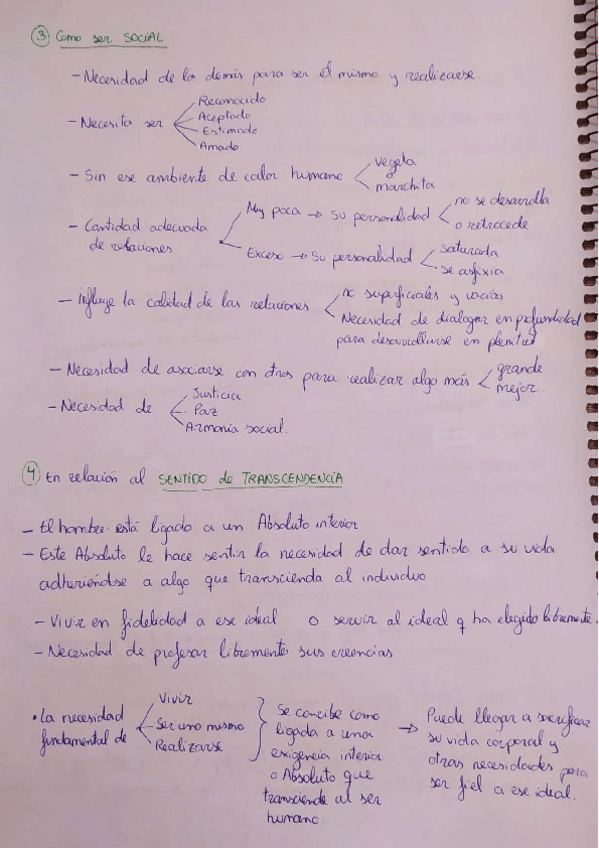 ③ Como ser SOCIAL
- Necesidad de los demás para ser él mismo y realizarse.
- Necesita ser
Reconocido
Aceptado
Estimado
Amado
- Sin ese ambiente de calor humano
vegeta
o marchita
- Cantidad adecuada
de relaciones
Muy poca → Su personalidad
no se desarrolla
o retrocede
Exceso → Su personalidad
saturada
se asfixia
- Influye la calidad de las relaciones
no superficiales y vacías
Necesidad de dialogar en profundidad
para desarrollarse en plenitud
- Necesidad de asociarse con otros para realizar algo más
grande
mejor.
- Necesidad de
Justicia
Paz
Armonía social.
④ En relación al SENTIDO de TRANSCENDENCIA
- El hombre está ligado a un Absoluto interior
- Este Absoluto le hace sentir la necesidad de dar sentido a su vida
adheriéndose a algo que transcienda al individuo
- Vivir en fidelidad a ese ideal o servir al ideal q ha elegido libremente.
- Necesidad de profesar libremente sus creencias
• La necesidad
fundamental de
Vivir
Ser uno mismo
Realizarse
Se concibe como
ligada a una
exigencia interior
o Absoluto que
transciende al ser
humano.
→ Puede llegar a sacrificar
su vida corporal y
otras necesidades para
ser fiel a ese ideal.